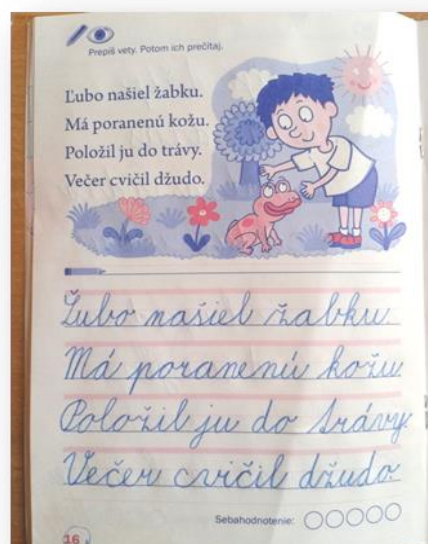 Prepíš vety. Potom ich prečítaj.
Ľubo našiel žabku.
Má poranenú kožu.
Položil ju do trávy.
Večer cvičil džudo.
Ľubo našiel žabku.
Má poranenú kožu.
Položil ju do trávy.
Večer cvičil džudo.
Sebahodnotenie:
16